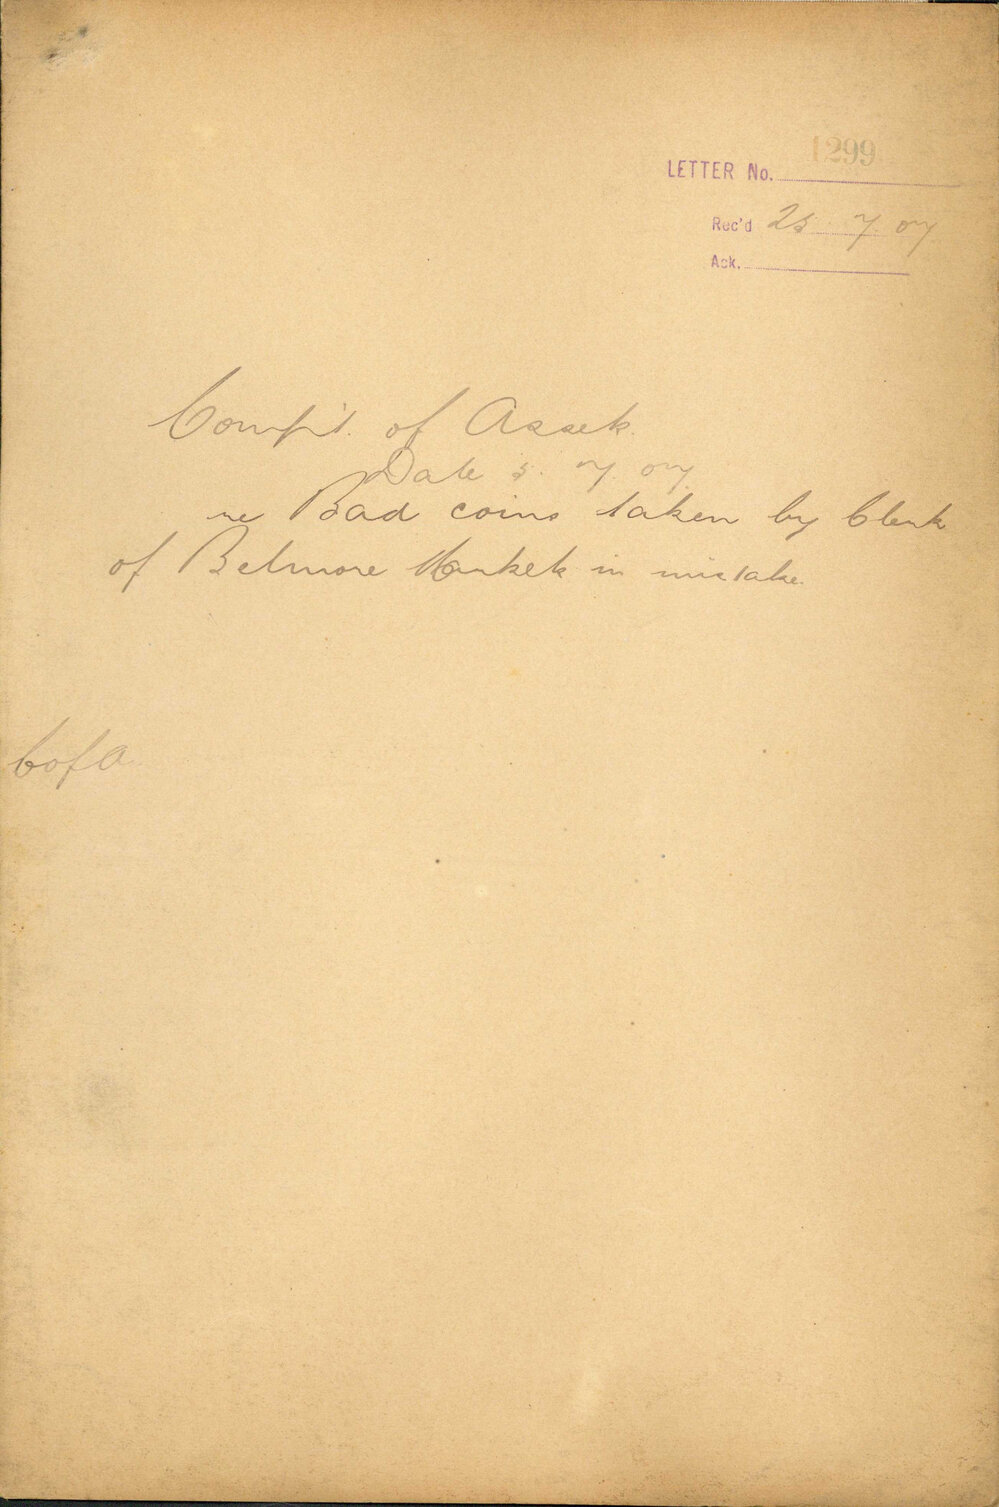 LETTER No. 1299
Rec'd 25 7 07
Ack.
Comp't. of Assets.
Date 5. 7. 07.
re Bad coins taken by Clerk
of Belmore Markets in mistake.
C of A